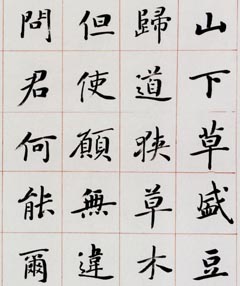 山下草盛豆
歸道狹草木
但使願無違
問君何能爾